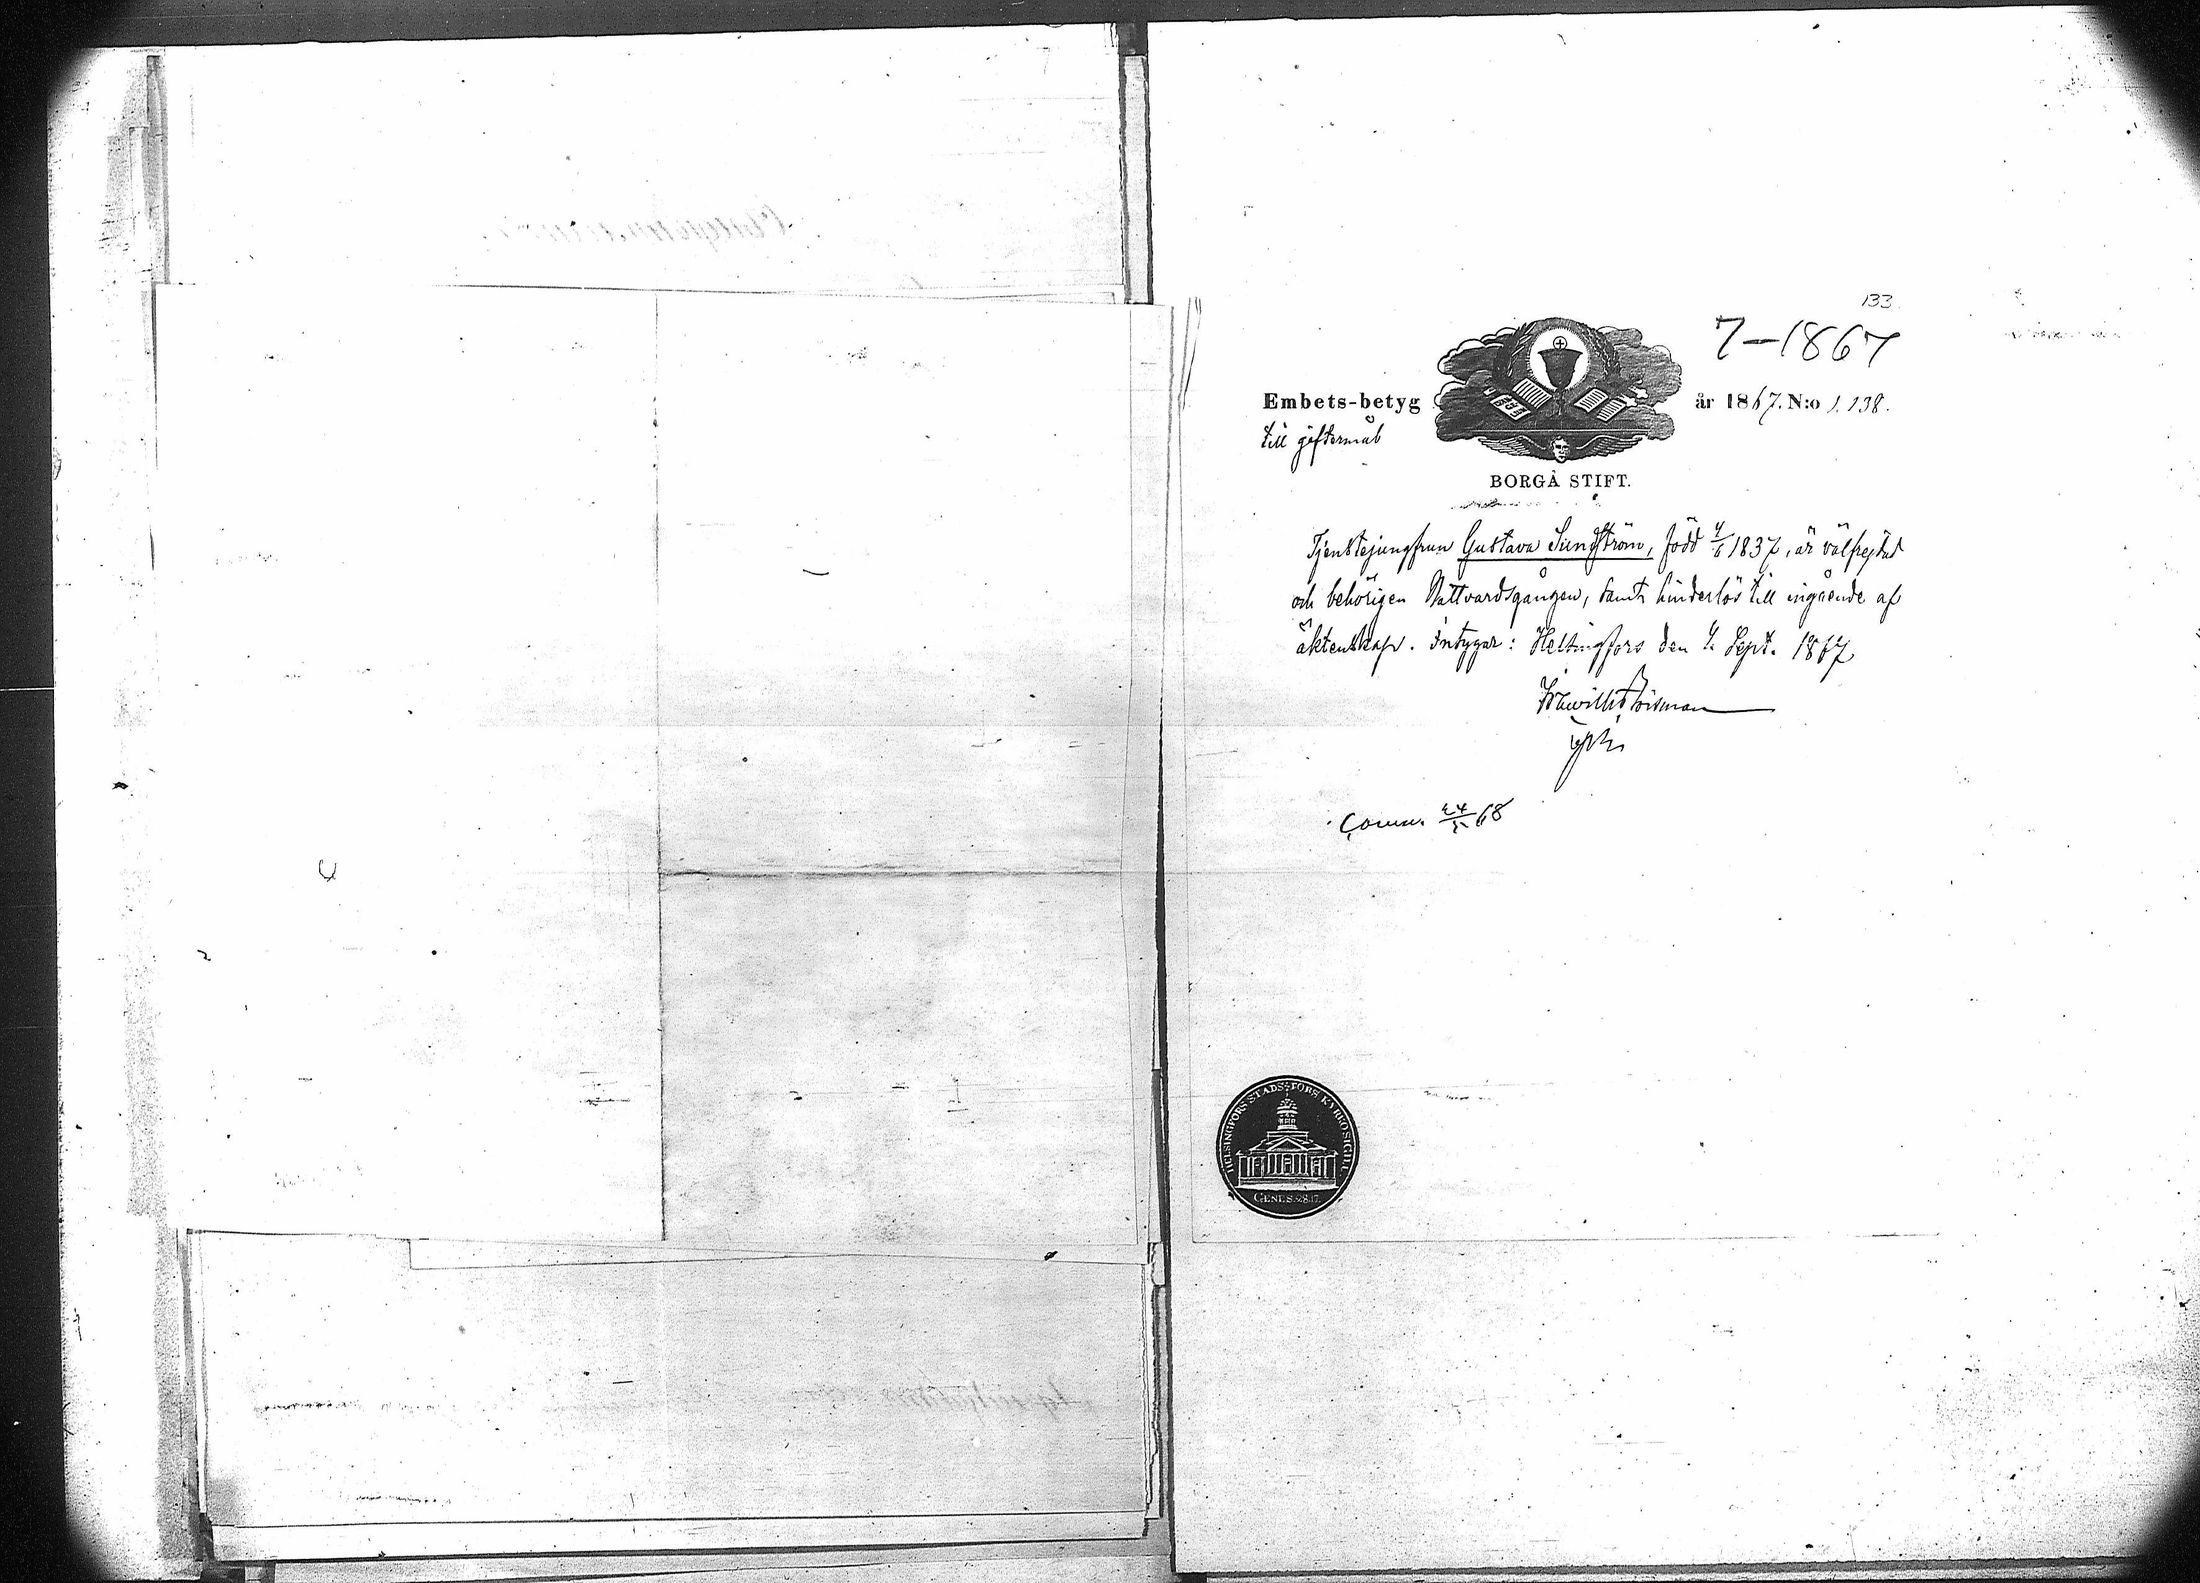 133
7-1867
Embets-betyg år 1867. N:o 1.138.
till giftermål
BORGÅ STIFT.
Tjenstejungfrun Gustava Sundström, född 4/6 1837, är välfrejdad
och behörigen Nattvardsgången, samt hinderlös till ingående af
äktenskap. Intygar: Helsingfors den 4 Sept. 1867
Comm. 24/5 68
HELSINGFORS STADS FÖRS. KYRKO SIGILL
GENES. 28.17.